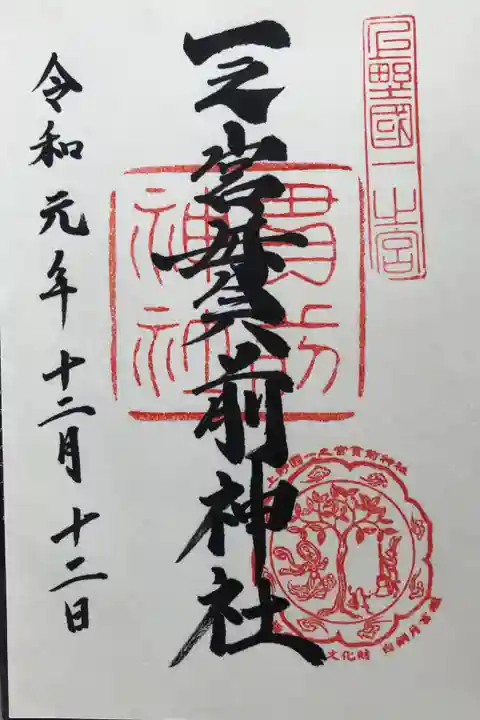 上野國一之宮
一之宮貫前神社
貫前
神社
令和元年十二月十二日
上野國一之宮貫前神社
文化財 白銅月宮鑑